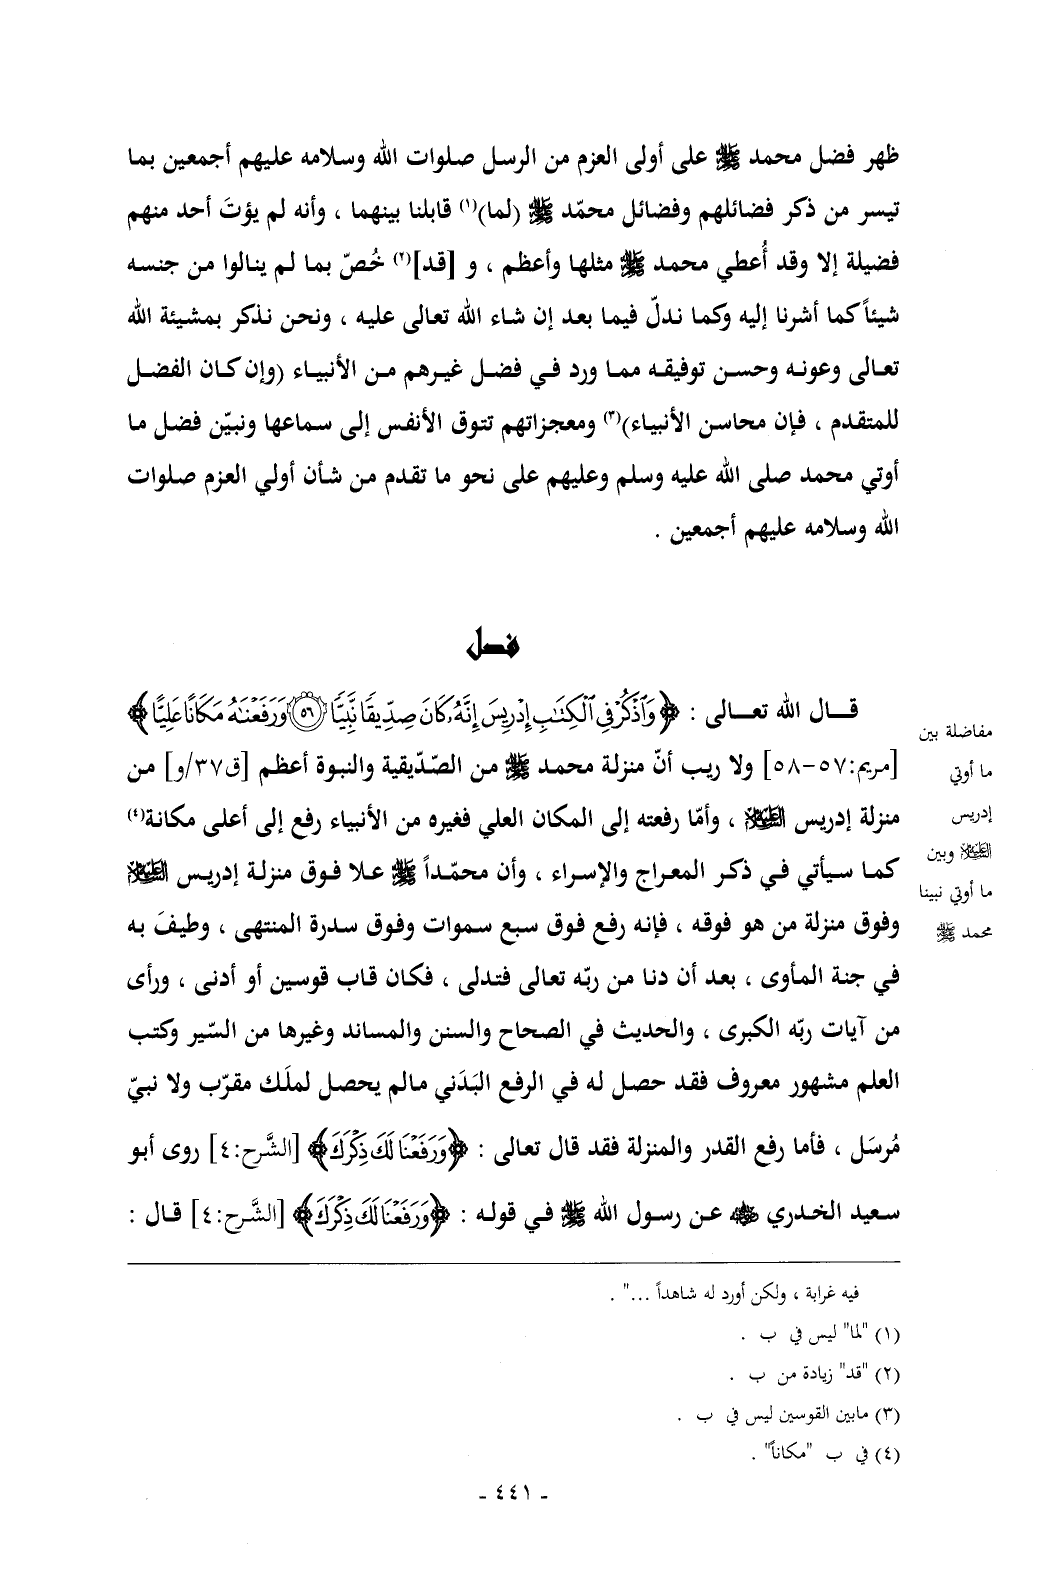 ظهر فضل محمد ﷺ على أولى العزم من الرسل صلوات الله وسلامه عليهم أجمعين بما
تيسر من ذكر فضائلهم وفضائل محمّد ﷺ (لما)(١) قابلنا بينهما ، وأنه لم يؤتَ أحد منهم
فضيلة إلا وقد أُعطي محمد ﷺ مثلها وأعظم ، و [قد](٢) خُصّ بما لم ينالوا من جنسه
شيئاً كما أشرنا إليه وكما ندلّ فيما بعد إن شاء الله تعالى عليه ، ونحن نذكر بمشيئة الله
تعالى وعونه وحسن توفيقه مما ورد في فضل غيرهم من الأنبياء (وإن كان الفضل
للمتقدم ، فإن محاسن الأنبياء)(٣) ومعجزاتهم تتوق الأنفس إلى سماعها ونبيّن فضل ما
أوتي محمد صلى الله عليه وسلم وعليهم على نحو ما تقدم من شأن أولي العزم صلوات
الله وسلامه عليهم أجمعين .
فصل
قال الله تعالى : ﴿وَٱذْكُرْ فِي ٱلْكِتَٰبِ إِدْرِيسَ إِنَّهُۥ كَانَ صِدِّيقًا نَّبِيًّا ٥٦ وَرَفَعْنَٰهُ مَكَانًا عَلِيًّا﴾
[مريم:٥٧-٥٨] ولا ريب أنّ منزلة محمد ﷺ من الصّديقية والنبوة أعظم [ق٣٧/و] من
منزلة إدريس عليه السلام ، وأمّا رفعته إلى المكان العلي فغيره من الأنبياء رفع إلى أعلى مكانة(٤)
كما سيأتي في ذكر المعراج والإسراء ، وأن محمّداً ﷺ علا فوق منزلة إدريس عليه السلام
وفوق منزلة من هو فوقه ، فإنه رفع فوق سبع سموات وفوق سدرة المنتهى ، وطيفَ به
في جنة المأوى ، بعد أن دنا من ربّه تعالى فتدلى ، فكان قاب قوسين أو أدنى ، ورأى
من آيات ربّه الكبرى ، والحديث في الصحاح والسنن والمساند وغيرها من السّير وكتب
العلم مشهور معروف فقد حصل له في الرفع البَدَني مالم يحصل لملَك مقرّب ولا نبيّ
مُرسَل ، فأما رفع القدر والمنزلة فقد قال تعالى : ﴿وَرَفَعْنَا لَكَ ذِكْرَكَ﴾ [الشَّرح:٤] روى أبو
سعيد الخدري رضي الله عنه عن رسول الله ﷺ في قوله : ﴿وَرَفَعْنَا لَكَ ذِكْرَكَ﴾ [الشَّرح:٤] قال :
مفاضلة بين
ما أوتي
إدريس
عليه السلام وبين
ما أوتي نبينا
محمد ﷺ
فيه غرابة ، ولكن أورد له شاهداً ..." .
(١) "لما" ليس في ب .
(٢) "قد" زيادة من ب .
(٣) مابين القوسين ليس في ب .
(٤) في ب "مكاناً" .
- ٤٤١ -